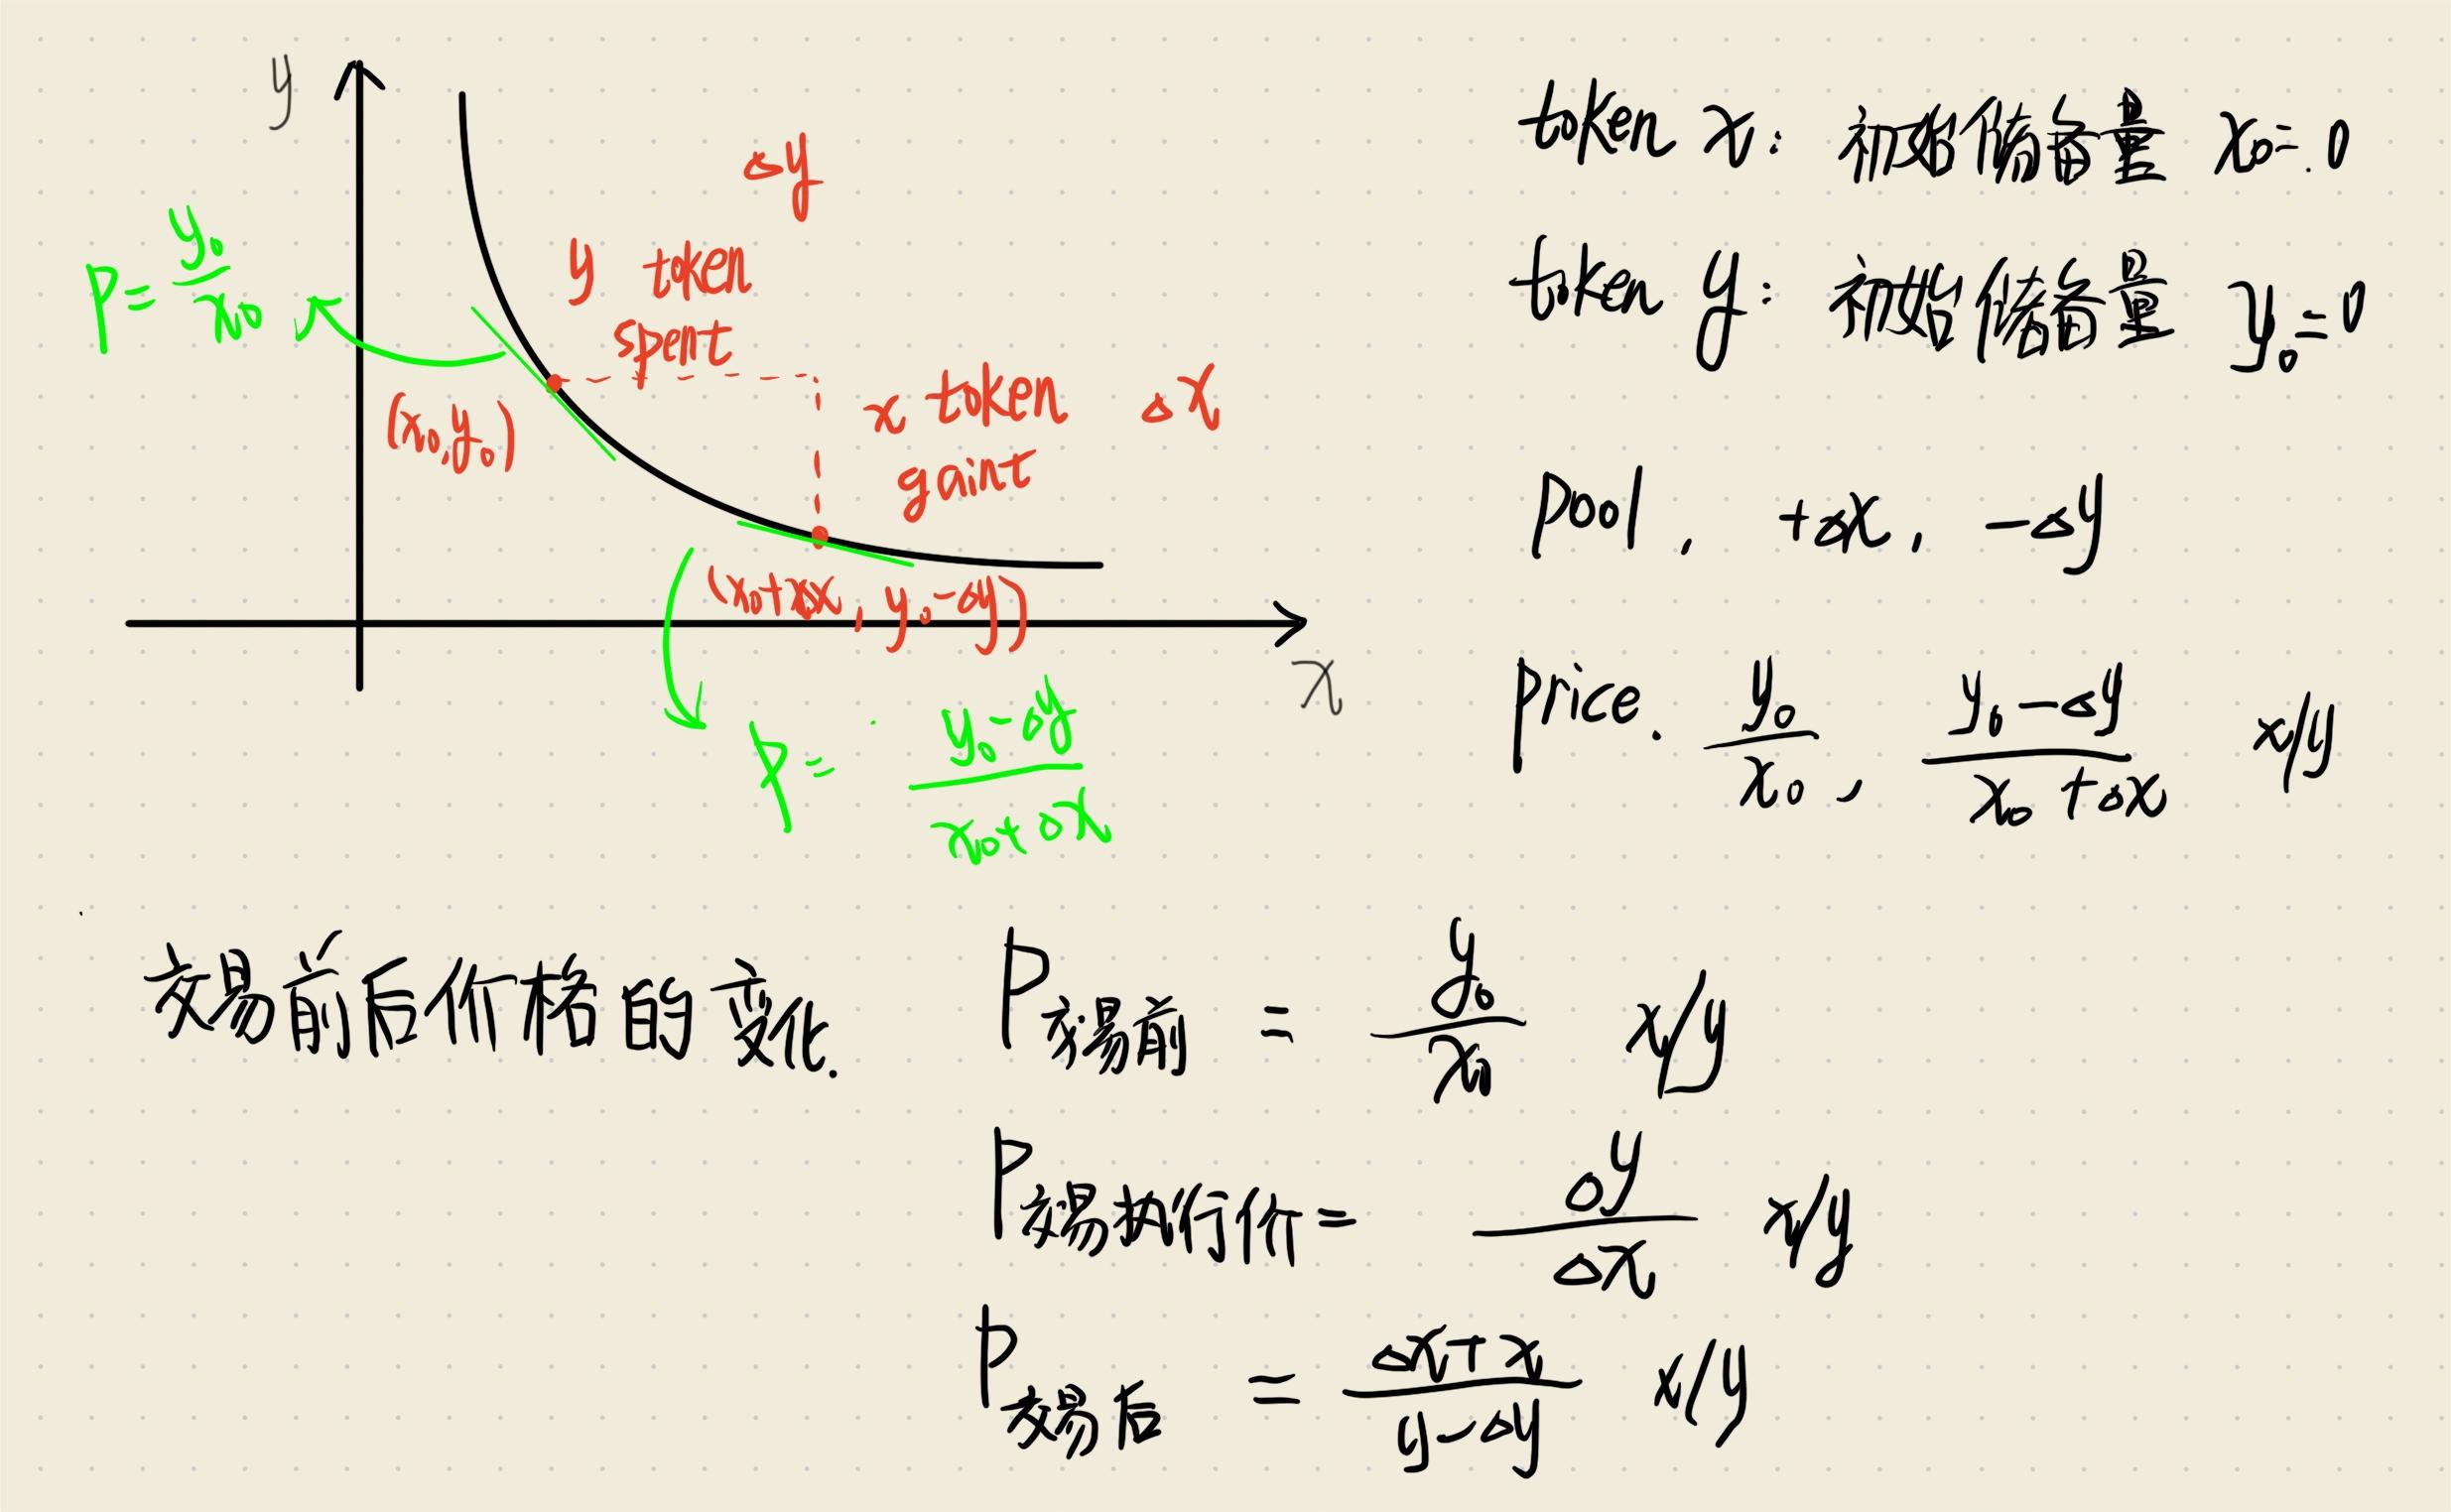 y
Δy
y token
spent
P = y₀/x₀
(x₀, y₀)
x token Δx
gaint
(x₀+Δx, y₀-Δy)
x
P = (y₀-Δy)/(x₀+Δx)
token x: 初始储备量 x₀=0
token y: 初始储备量 y₀=0
Pool, +Δx, -Δy
Price. y₀/x₀, (y₀-Δy)/(x₀+Δx) x/y
交易前后价格的变化.
P交易前 = y₀/x₀ x/y
P交易执行价 = Δy/Δx x/y
P交易后 = (Δx+x)/(y-Δy) x/y